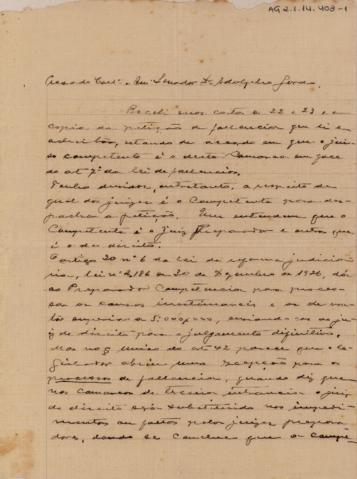 AG 2.1.14.408-1
Presado Coll.ª e Am.º Senador Dr. Adolpho Gordo.
Recebi suas cartas de 22 e 23 e a
copia da petição de fallencia que li e
estando de accordo em que o jui-
so competente é o desta Comarca em face
do art. 7º da lei de fallencias.
Tenho duvidas, entretanto, a respeito de
qual dos juizes é o competente para des-
pachar a petição. Uns entendem que o
Competente é o juiz Preparador e outros que
é o de direito.
O artigo 20 nº 6 da lei da reforma judicia-
ria, lei nº 2186 de 30 de Dezembro de 1926, dá
ao Preparador Competencia para proces-
sar as causas inestimaveis e as de va-
lor superior a 5:000$000, enviando-as ao ju-
iz de direito para o julgamento definitivo.
Mas no § unico do art. 42 parece que o le-
gislador abriu uma excepção para os
processos de fallencia, quando diz que
nas comarcas de terceira entrancia o juiz
de direito será substituido nos impedi-
mentos ou faltas pelos juizes prepara-
dores, dando se conclue que os compe-